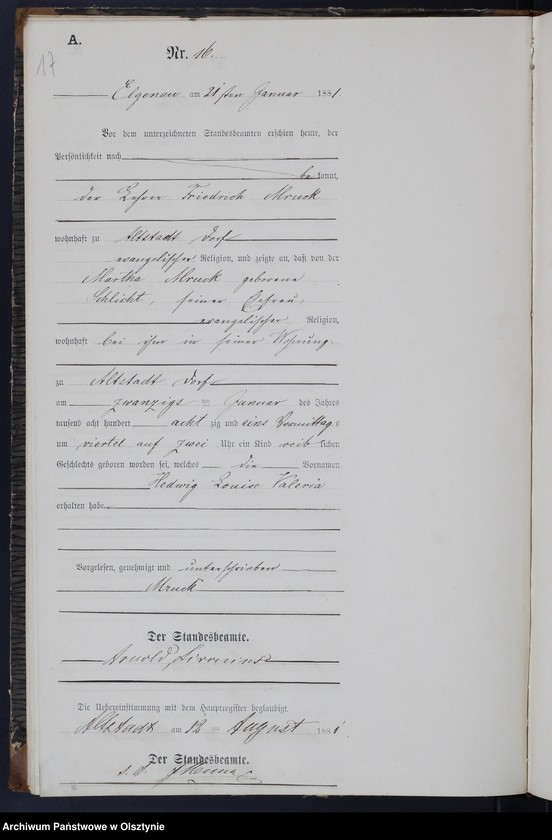 A.
17
Nr. 16.
Elgenau am 21sten Januar 1881.
Vor dem unterzeichneten Standesbeamten erschien heute, der
Persönlichkeit nach
be kannt,
der Lehrer Friedrich Mruck
wohnhaft zu Altstadt Dorf
evangelischer Religion, und zeigte an, daß von der
Martha Mruck geborene
Schlicht, seiner Ehefrau,
evangelischer Religion,
wohnhaft bei ihm in seiner Wohnung
zu Altstadt Dorf
am zwanzigsten Januar des Jahres
tausend acht hundert acht zig und eins Vormittags
um viertel auf zwei Uhr ein Kind weib lichen
Geschlechts geboren worden sei, welches die Vornamen
Hedwig Louise Valeria
erhalten habe.
Vorgelesen, genehmigt und unterschrieben
Mruck
Der Standesbeamte.
Arnold
Die Uebereinstimmung mit dem Hauptregister beglaubigt.
Altstadt am 12 August 1881
Der Standesbeamte.
Archiwum Państwowe w Olsztynie